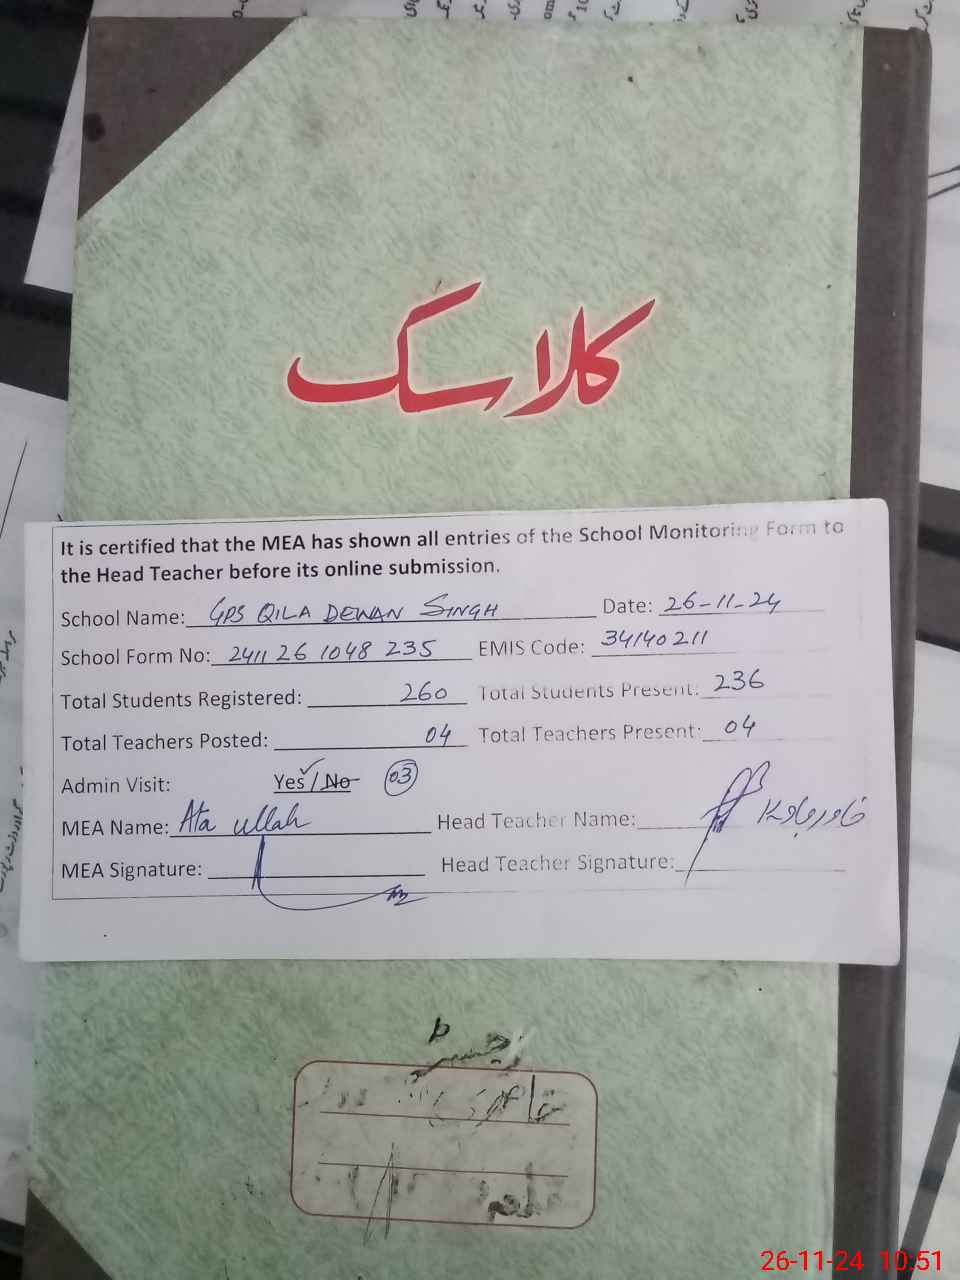 کلاسک
It is certified that the MEA has shown all entries of the School Monitoring Form to
the Head Teacher before its online submission.
School Name: GPS QILA DEWAN SINGH Date: 26-11-24
School Form No: 2411 26 1048 235 EMIS Code: 34140211
Total Students Registered: 260 Total Students Present: 236
Total Teachers Posted: 04 Total Teachers Present: 04
Admin Visit: Yes / No 03
MEA Name: Ata ullah Head Teacher Name:
MEA Signature: Head Teacher Signature:
رجسٹر
26-11-24 10:51